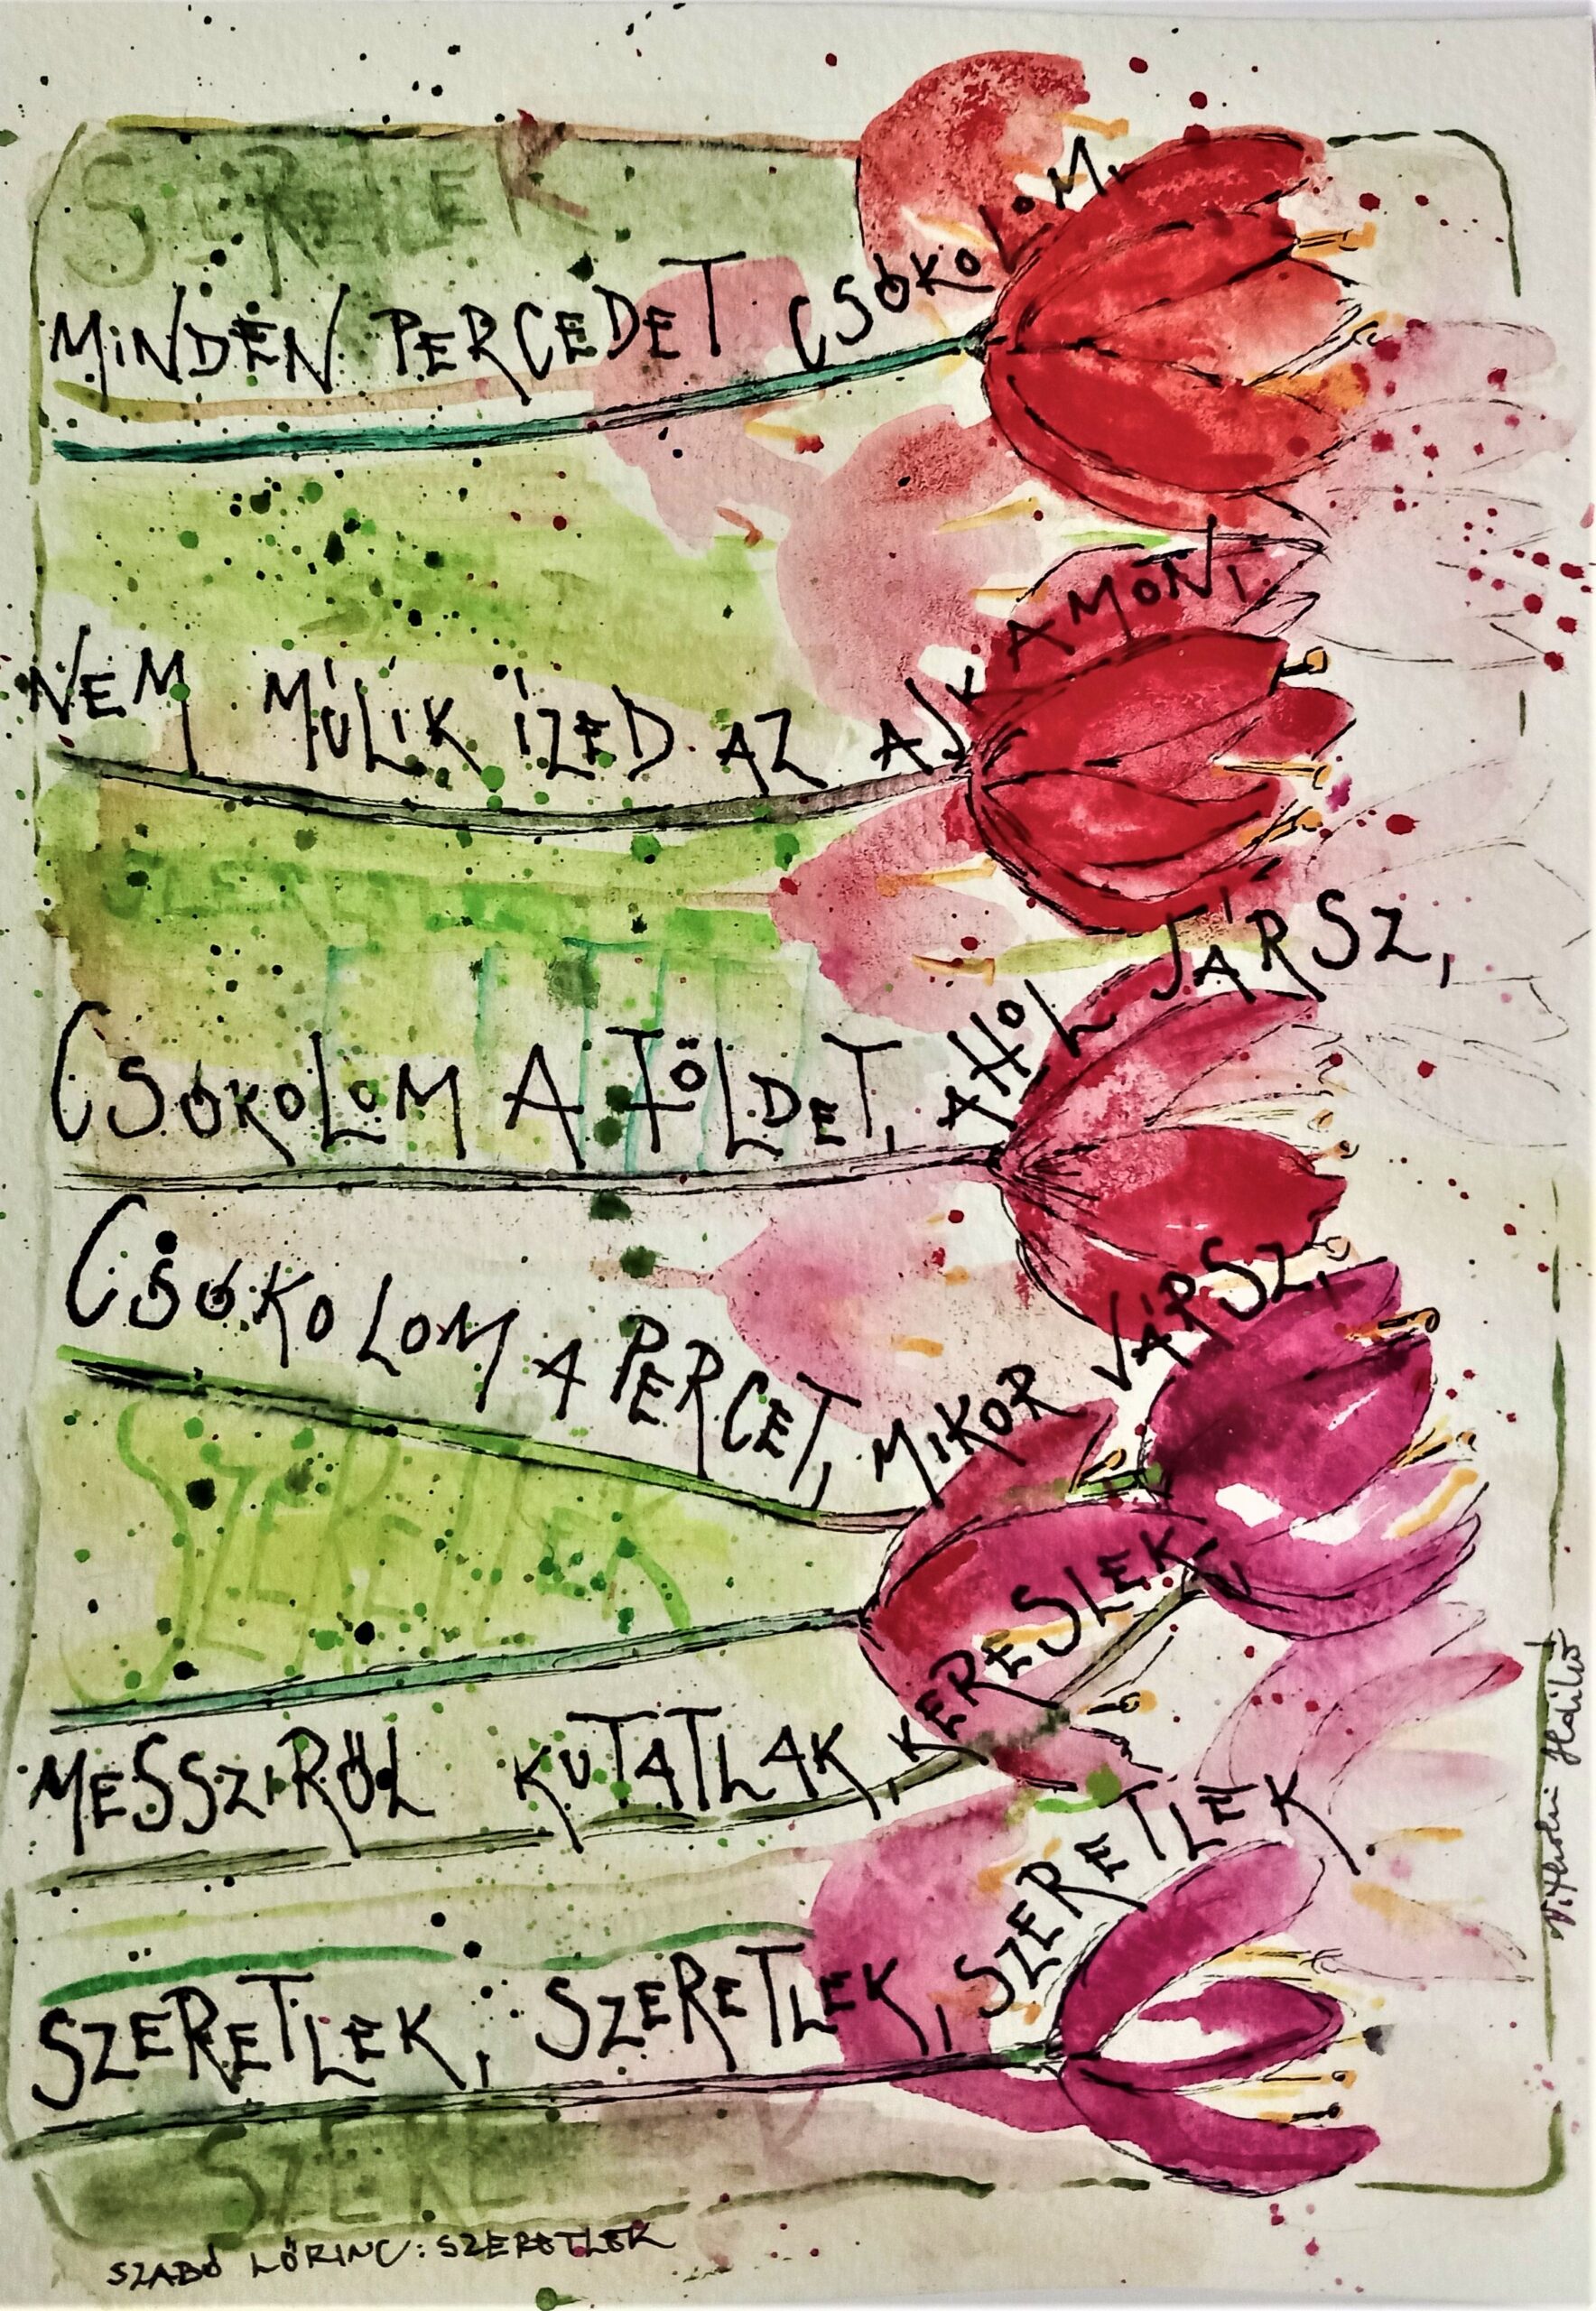 SZERETLEK
MINDEN PERCEDET CSÓKOLOM,
NEM MÚLIK ÍZED AZ AJKAMONI.
SZERETLEK
CSÓKOLOM A FÖLDET, AHOL JÁRSZ,
CSÓKOLOM A PERCET, MIKOR VÁRSZ,
SZERETLEK
MESSZIRŐL KUTATLAK, KERESLEK,
SZERETLEK, SZERETLEK, SZERETLEK
SZERE
SZABÓ LŐRINC: SZERETLEK